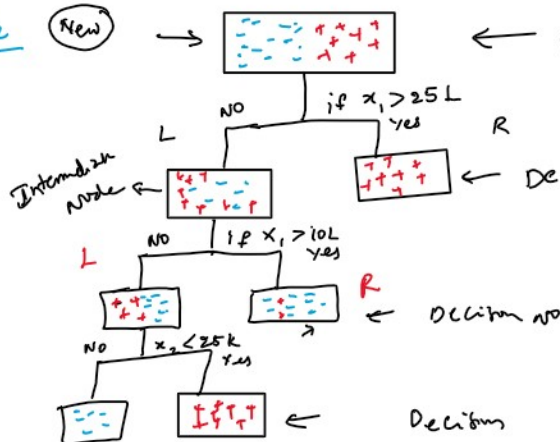 New
if x₁ > 25 L
NO
yes
L
R
Intermediate
Node
De
if x₁ > 10L
NO
yes
L
R
Decision No
NO
x₂ < 25k
Yes
Decisions